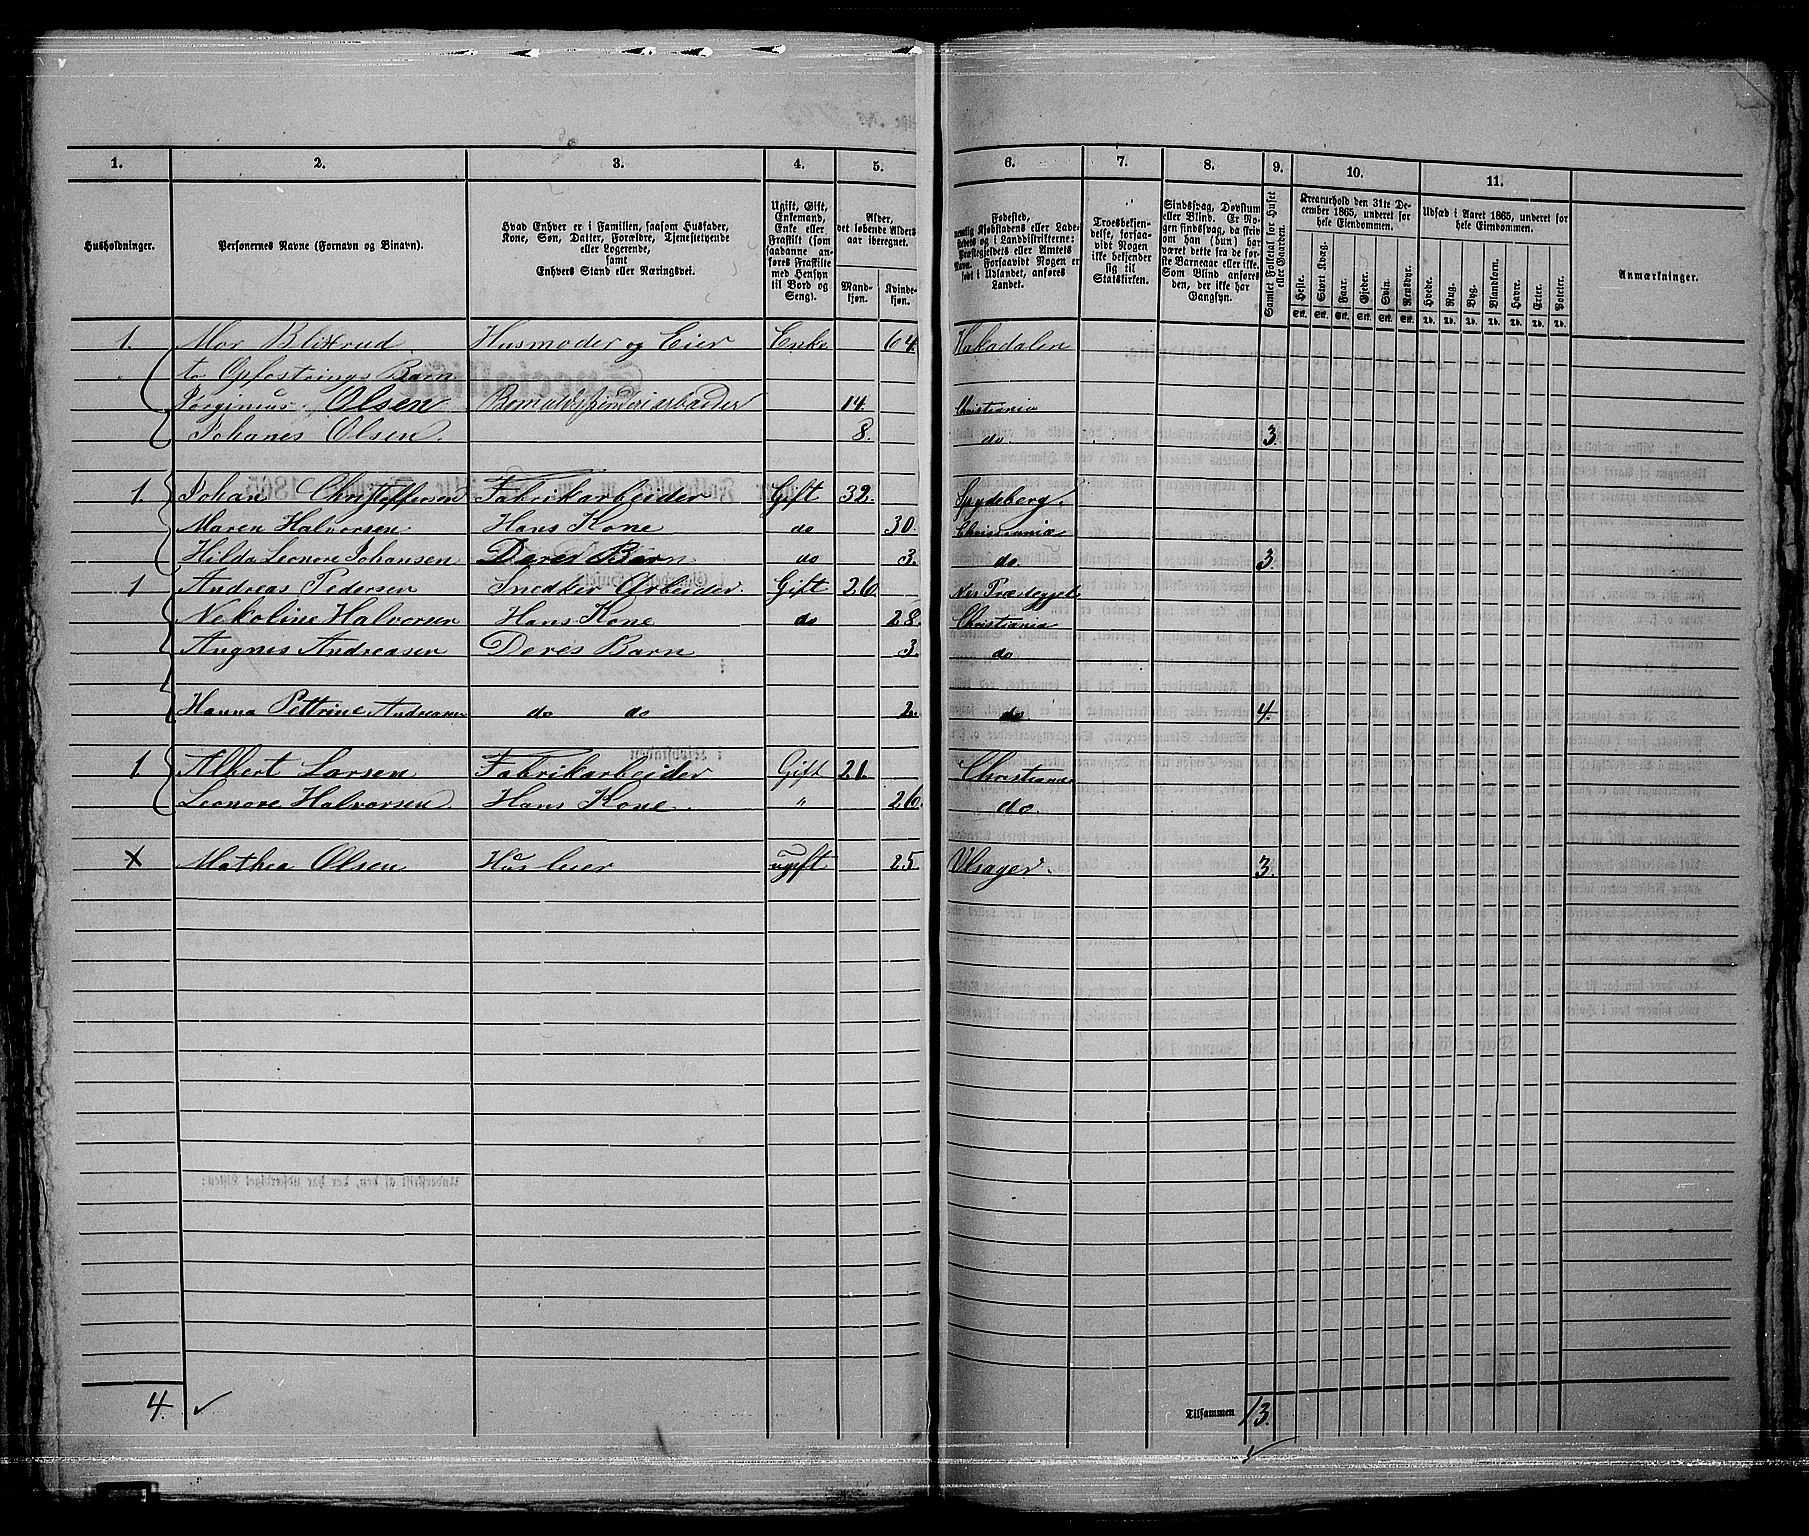 1. 2. 3. 4. 5. 6. 7. 8. 9. 10. 11.
Husholdninger.
Personernes Navne (Fornavn og Binavn).
Hvad Enhver er i Familien, saasom Husfader,
Kone, Søn, Datter, Forældre, Tjenestetyende
eller Logerende,
samt
Enhvers Stand eller Næringsvei.
Ugift, Gift,
Enkemand,
Enke eller
Fraskilt (som
saadanne an-
føres Fraskilte
med Hensyn
til Bord og
Seng).
Alder,
det løbende Alders-
aar iberegnet.
Mand-
kjøn.
Kvinde-
kjøn.
Fødested,
nemlig Kjøbstadens eller Lade-
stedets og i Landdistrikterne:
Præstegjeldets eller Amtets
Navn. Forsaavidt Nogen er
født i Udlandet, anføres
Landet.
Troesbekjen-
delse, forsaa-
vidt Nogen
ikke bekjender
sig til
Statskirken.
Sindssvag, Døvstum
eller Blind. Er No-
gen sindssvag, da skriv
om han (hun) har
været dette fra de før-
ste Barneaar eller ikke.
Som Blind anføres
den, der ikke har
Gangsyn.
Samlet Folketal for Huset
eller Gaarden.
Kreaturhold den 31te De-
cember 1865, underet for
hele Eiendommen.
Heste. Stort Kvæg. Faar. Gjeder. Svin. Rensdyr.
Stk. Stk. Stk. Stk. Stk. Stk.
Udsæd i Aaret 1865, underet for
hele Eiendommen.
Hvede. Rug. Byg. Blandkorn. Havre. Erter. Poteter.
Td. Td. Td. Td. Td. Td. Td.
Anmærkninger.
1. Mor Blixrud Husmoder og Eier Enke 64. Hakadalen
to Opfostrings Barn
Jørginius Olsen 14. Christiania
Johanes Olsen. 8. do 3.
1. Johan Christoffersen Fabrikarbeider Gift 32. Spydeberg.
Maren Halvorsen Hans Kone do 30 Christiania
Hilda Leonore Johansen Deres Barn do 3. do 3.
1 Andreas Pedersen Snedker Arbeider. Gift 26 Nes Præsteggjel
Nekoline Halvorsen Hans Kone do 28. Christiania
Angnes Andreasen Deres Barn 3. do
Hanna Pettrine Andreasen do do 2. do 4.
1. Albert Larsen Fabrikarbeider Gift 21. Christiania
Leonore Halvorsen Hans Kone. " 26. do.
x Mathea Olsen Husleier ugift 25. Ulsager. 3.
4. ✓ Tilsammen 13. ✓